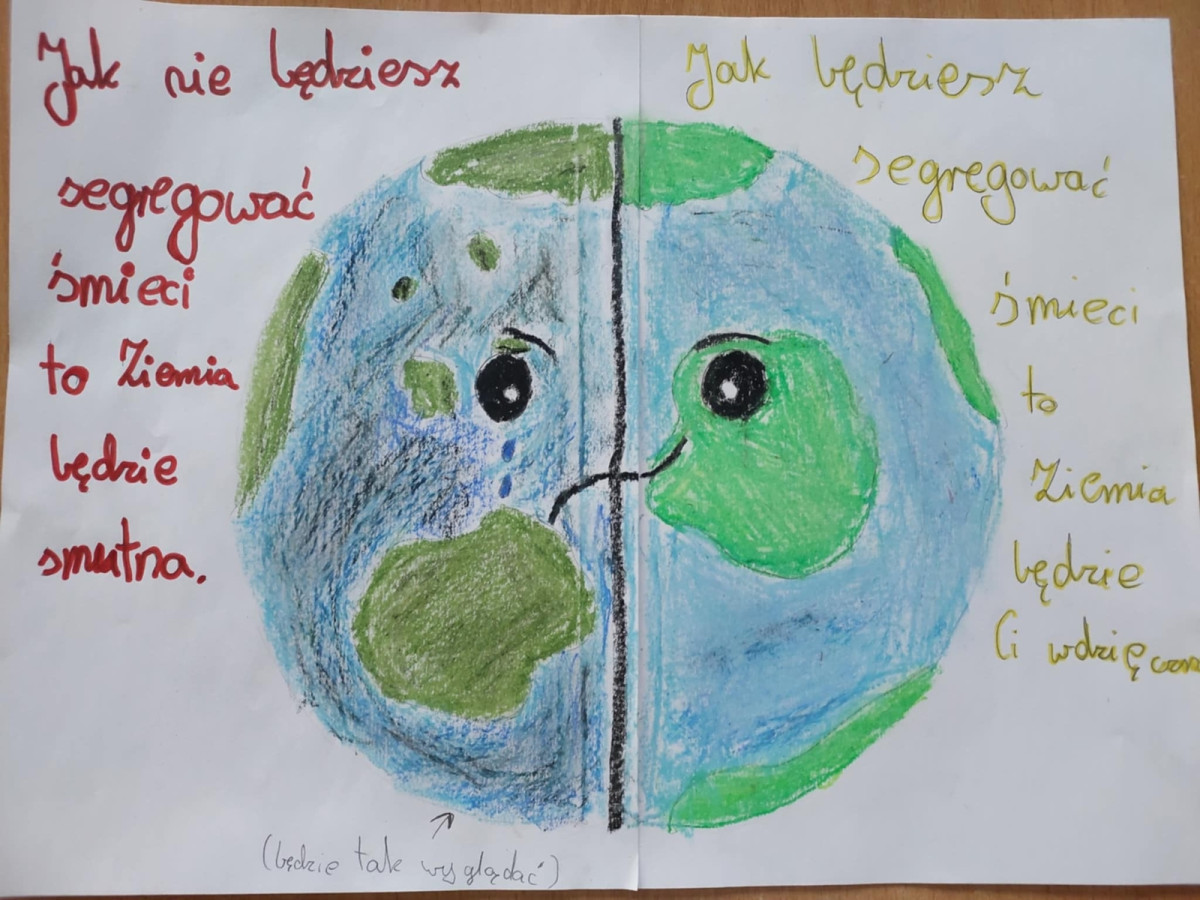 Jak nie będziesz
segregować
śmieci
to Ziemia
będzie
smutna.
Jak będziesz
segregować
śmieci
to
Ziemia
będzie
Ci
(będzie tak wyglądać)